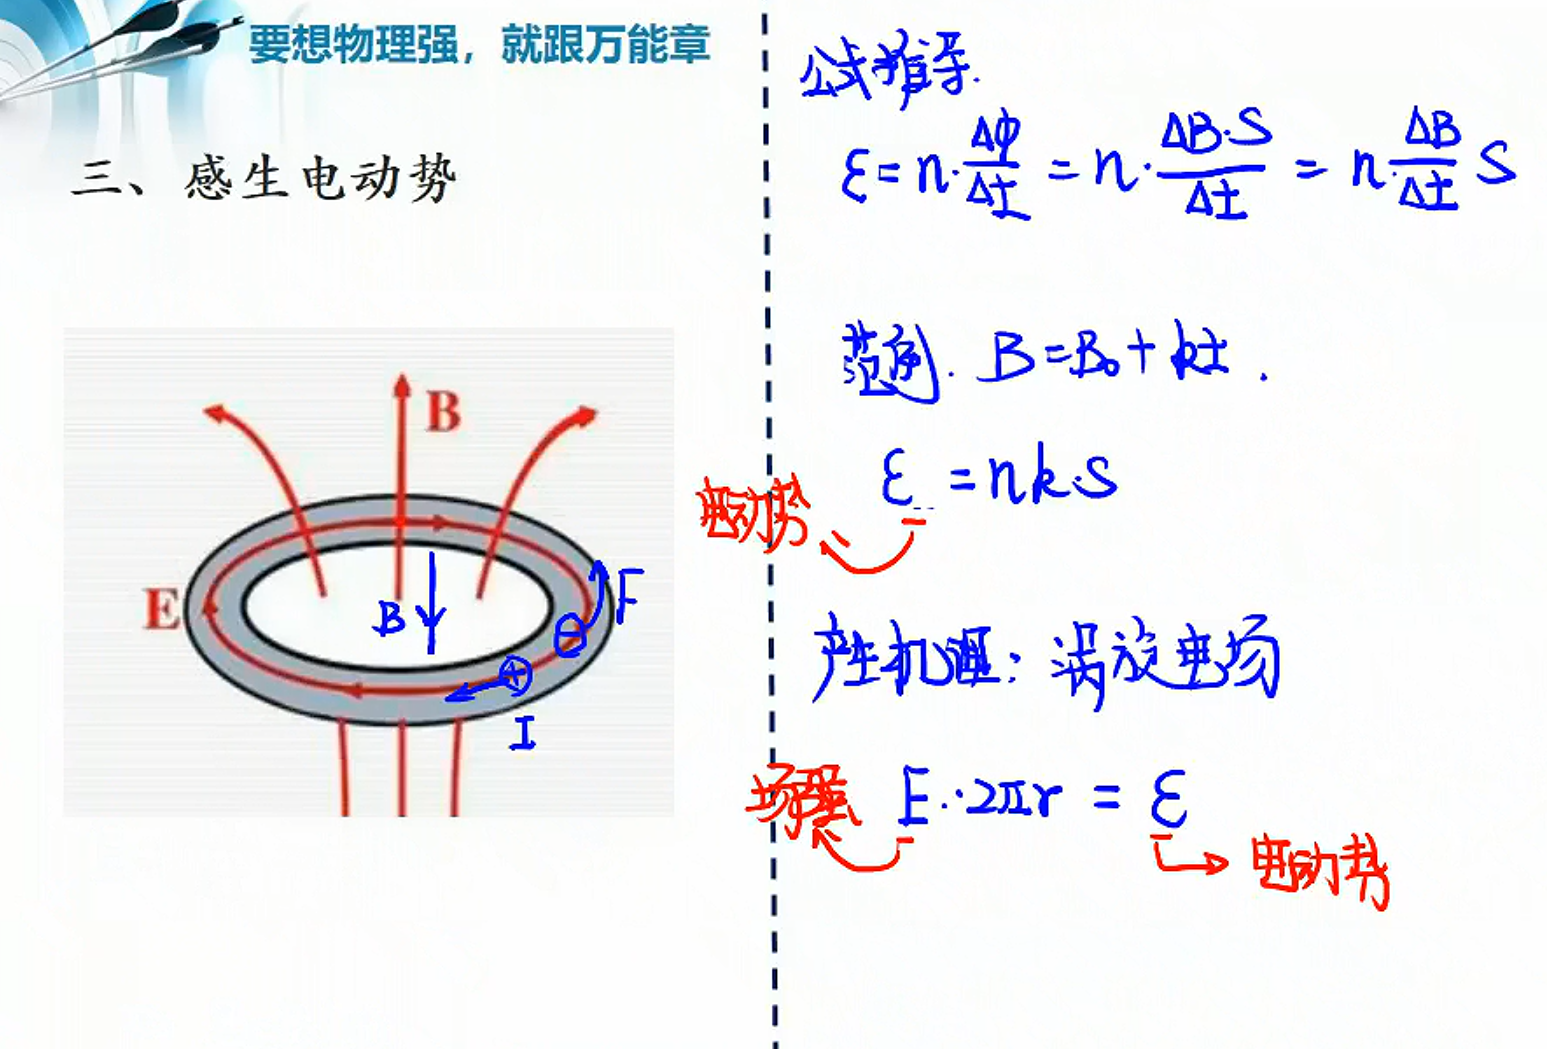 要想物理强，就跟万能章
三、感生电动势
B
E
B
F
I
公式推导.
ε=n·Δφ/Δt=n·ΔB·S/Δt=n·ΔB/Δt S
范例. B=B₀+kt.
ε=nk·S
电动势
产生机理：涡旋电场
场强 E·2πr=ε
电动势